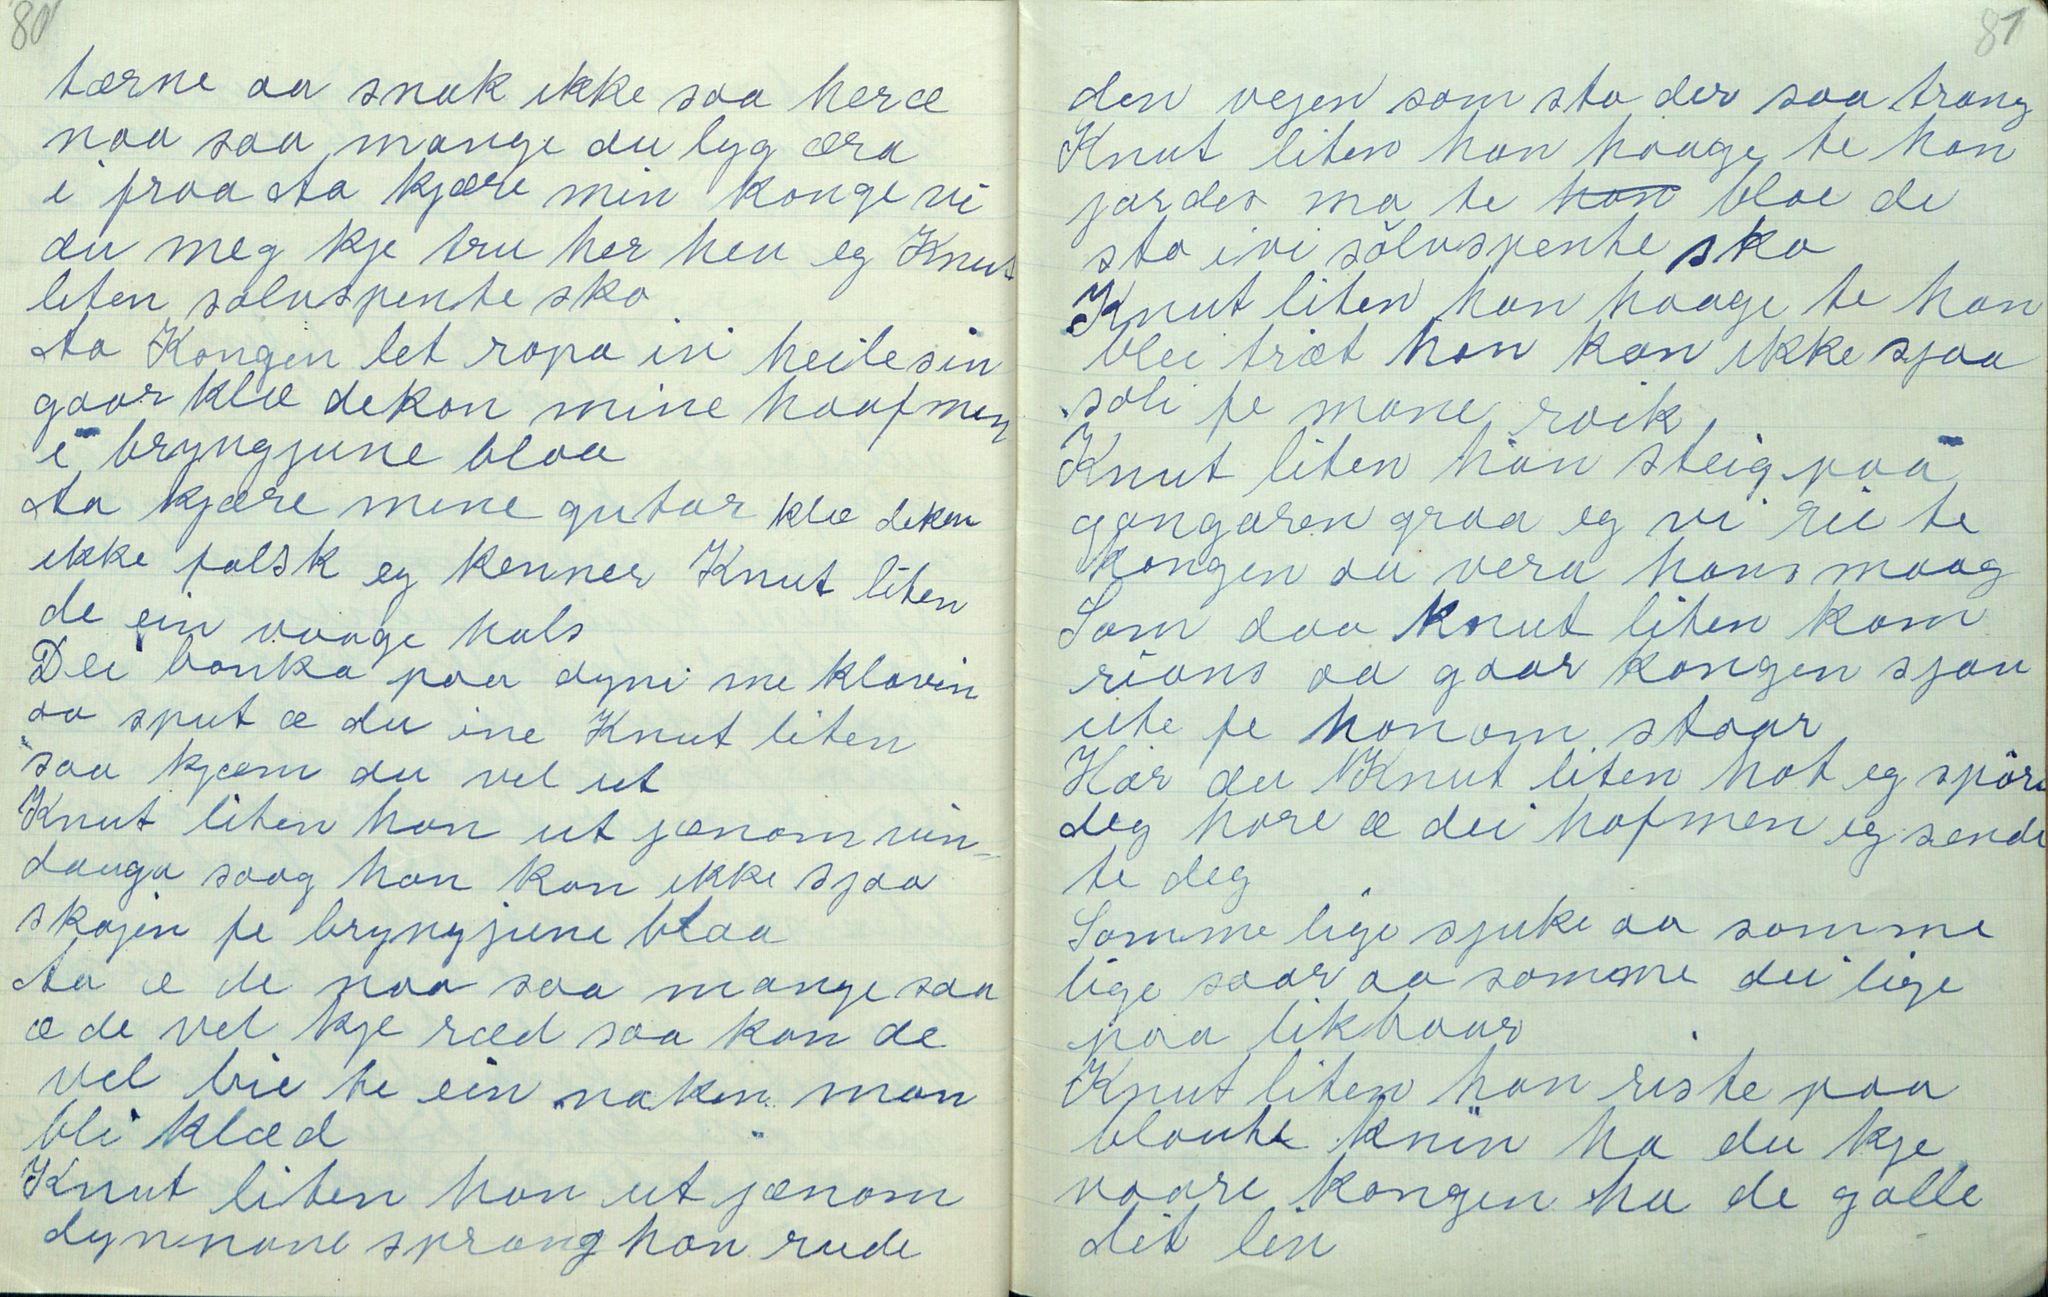 80
tærne aa snak ikke saa heræ
naa saa mange du lyg æra
i fraa Aa kjære min konge vi
du meg kje tru her heu eg Knut
liten sølvspente sko
Aa Kongen let ropa ivi heile sin
gaar klæ dekon mine haafmen
i bryngjune blaa
Aa kjære mine gutar klæ deken
ikke falsk eg kenner Knut liten
de ein vaage hals
Dei banka paa dyni me klovin
aa sput æ du ine Knut liten
saa kjæm du vel ut
Knut liten han ut jænom vin-
dauga saag han kan ikke sjaa
skojin fe bryngjune blaa
Aa æ de naa saa mange saa
æ de vel kje ræd saa kan de
vel bie te ein naken man
bli klæd
Knut liten han ut jænom
dynnane sprang han rude
81
den vejen som sto der saa trang
Knut liten han haage te han
jorder ma te bloe de
sto ivi sölvspente sko
Knut liten han haage te han
blei træt han kan ikke sjaa
soli fe mane roik
Knut liten han steig paa
gangaren graa eg vi rie te
kongen aa vera hans maag
Som daa Knut liten kom
rians aa gaar kongen sjau
ute fe honom staar
Hør du Knut liten hot eg spöre
deg hore æ dei hofmen eg sende
te deg
Somme lige sjuke aa somme
lige saar aa somme dei lige
paa likbaar
Knut liten han riste paa
blanke kniin ha du kje
vaare kongen ha de galle
dit liv